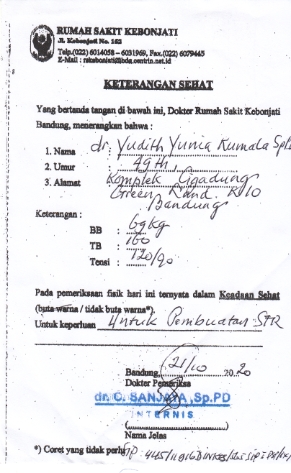 RUMAH SAKIT KEBONJATI
Jl. Kebonjati No. 152
Telp.(022) 6014058 - 6031969, Fax.(022) 6079445
E-Mail : rskebonjati@bdg.centrin.net.id
KETERANGAN SEHAT
Yang bertanda tangan di bawah ini, Dokter Rumah Sakit Kebonjati
Bandung, menerangkan bahwa :
1. Nama : dr. Yudith Yunia Kumala
2. Umur : 49th
3. Alamat : Komplek Cigadung
Green Land
Bandung
Keterangan :
BB : 69kg
TB : 160
Tensi : 120/90
Pada pemeriksaan fisik hari ini ternyata dalam Keadaan Sehat
(buta warna / tidak buta warna*).
Untuk keperluan : Untuk Pembuatan STR
Bandung, 21/10 2020
Dokter Pemeriksa
dr. C. SANJAYA, Sp.PD
INTERNIS
Nama Jelas
*) Coret yang tidak perlu